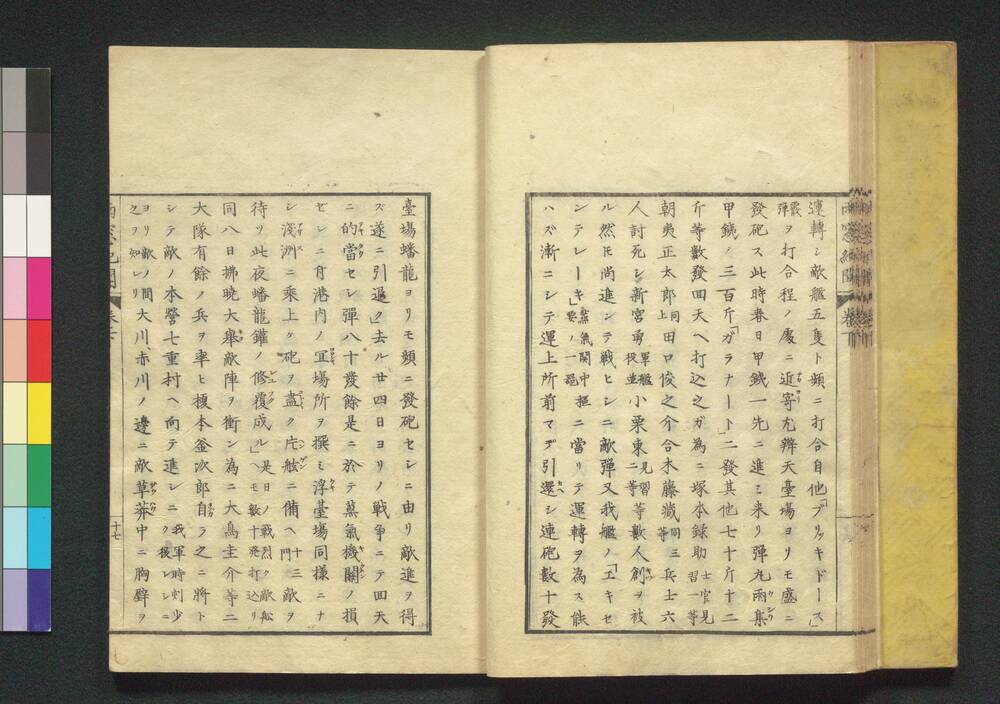 運轉シ敵艦五隻ト頻ニ打合自他「ブリッキドース」
霰彈ヲ打合程ノ處ニ近寄尤辨天臺場ヨリモ盛ニ
發砲ス此時春日甲鐵一先ニ進ミ来リ彈丸雨集
甲鐵ノ三百斤「ガラナート」二發其他七十斤十二
斤等數發回天ヘ打込之ガ為ニ塚本録助士官見習一等
朝夷正太郎同上田口俊之介合木藤藏同三等兵士六
人討死シ新宮勇軍艦役並小栗東二見習二等等數人創ヲ被
ル然𪜈尚進ンテ戰ヒシニ敵彈又我艦ノ「エキセ
ンテレーキ」蒸氣関中樞要ノ一器ニ當リテ運轉ヲ為ス能
ハズ漸ニシテ運上所前マデ引還シ連砲數十發
臺場蟠龍ヨリモ頻ニ發砲セシニ由リ敵進ヲ得
ズ遂ニ引退ク去ル廿四日ヨリノ戦争ニテ回天
ニ的當セシ彈八十發餘是ニ於テ蒸氣機關ノ損
ゼシニ付港内ノ冝場所ヲ撰ミ浮臺場同様ニナ
シ淺洲ニ乘上ケ砲ヲ盡ク片舷ニ備ヘ十三門敵ヲ
待ツ此夜蟠龍鑵ノ修覆成ル是日ノ戰烈ク敵舩ヘモ數十発打込リ
同八日拂曉大舉敵陣ヲ衝ン為ニ大鳥圭介等二
大隊有餘ノ兵ヲ率ヒ榎本釜次郎自ラ之ニ將ト
シテ敵ノ本營七重村ヘ向テ進シニ我軍時刻少ク後レシニ
ヨリ敵之ヲ知レリノ間大川、赤川ノ邊ニ敵草莽中ニ胸壁ヲ
十七